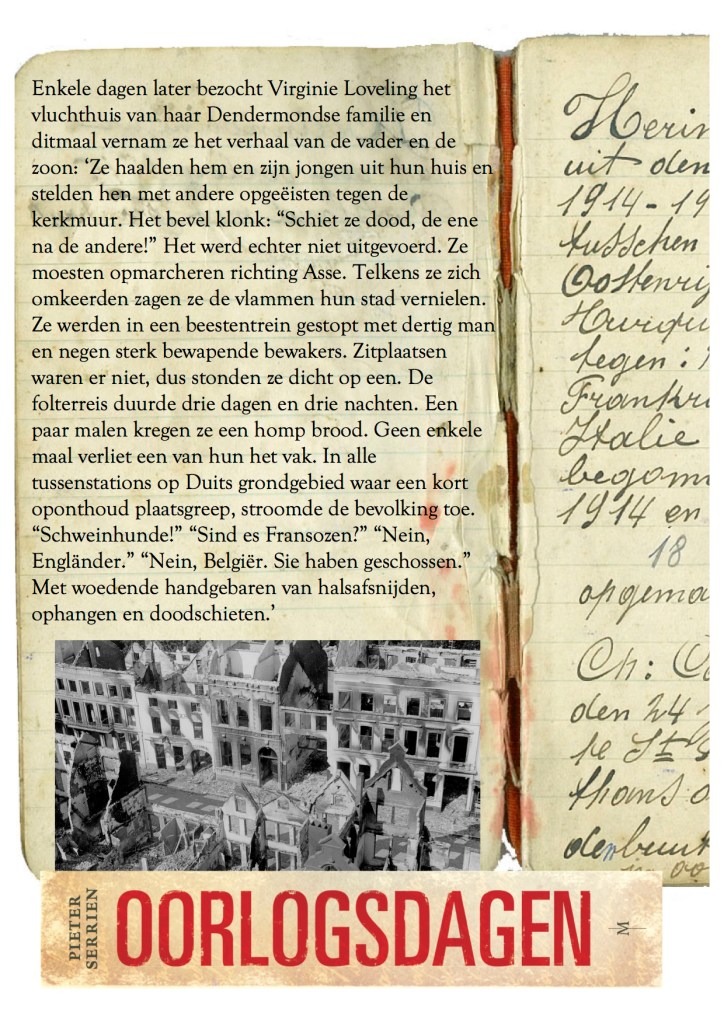 Enkele dagen later bezocht Virginie Loveling het
vluchthuis van haar Dendermondse familie en
ditmaal vernam ze het verhaal van de vader en de
zoon: ‘Ze haalden hem en zijn jongen uit hun huis en
stelden hen met andere opgeëisten tegen de
kerkmuur. Het bevel klonk: “Schiet ze dood, de ene
na de andere!” Het werd echter niet uitgevoerd. Ze
moesten opmarcheren richting Asse. Telkens ze zich
omkeerden zagen ze de vlammen hun stad vernielen.
Ze werden in een beestentrein gestopt met dertig man
en negen sterk bewapende bewakers. Zitplaatsen
waren er niet, dus stonden ze dicht op een. De
folterreis duurde drie dagen en drie nachten. Een
paar malen kregen ze een homp brood. Geen enkele
maal verliet een van hun het vak. In alle
tussenstations op Duits grondgebied waar een kort
oponthoud plaatsgreep, stroomde de bevolking toe.
“Schweinhunde!” “Sind es Fransozen?” “Nein,
Engländer.” “Nein, Belgiër. Sie haben geschossen.”
Met woedende handgebaren van halsafsnijden,
ophangen en doodschieten.’
uit den
1914-19
tusschen
tegen:
Italie
1914 en
18
opgema
Ch:
den 24
te St
thans
PIETER
SERRIEN
OORLOGSDAGEN
M